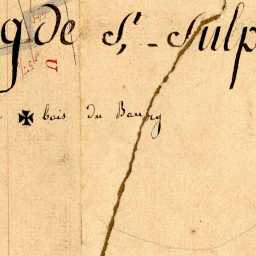 g de St. Sulp
bois du Bourg